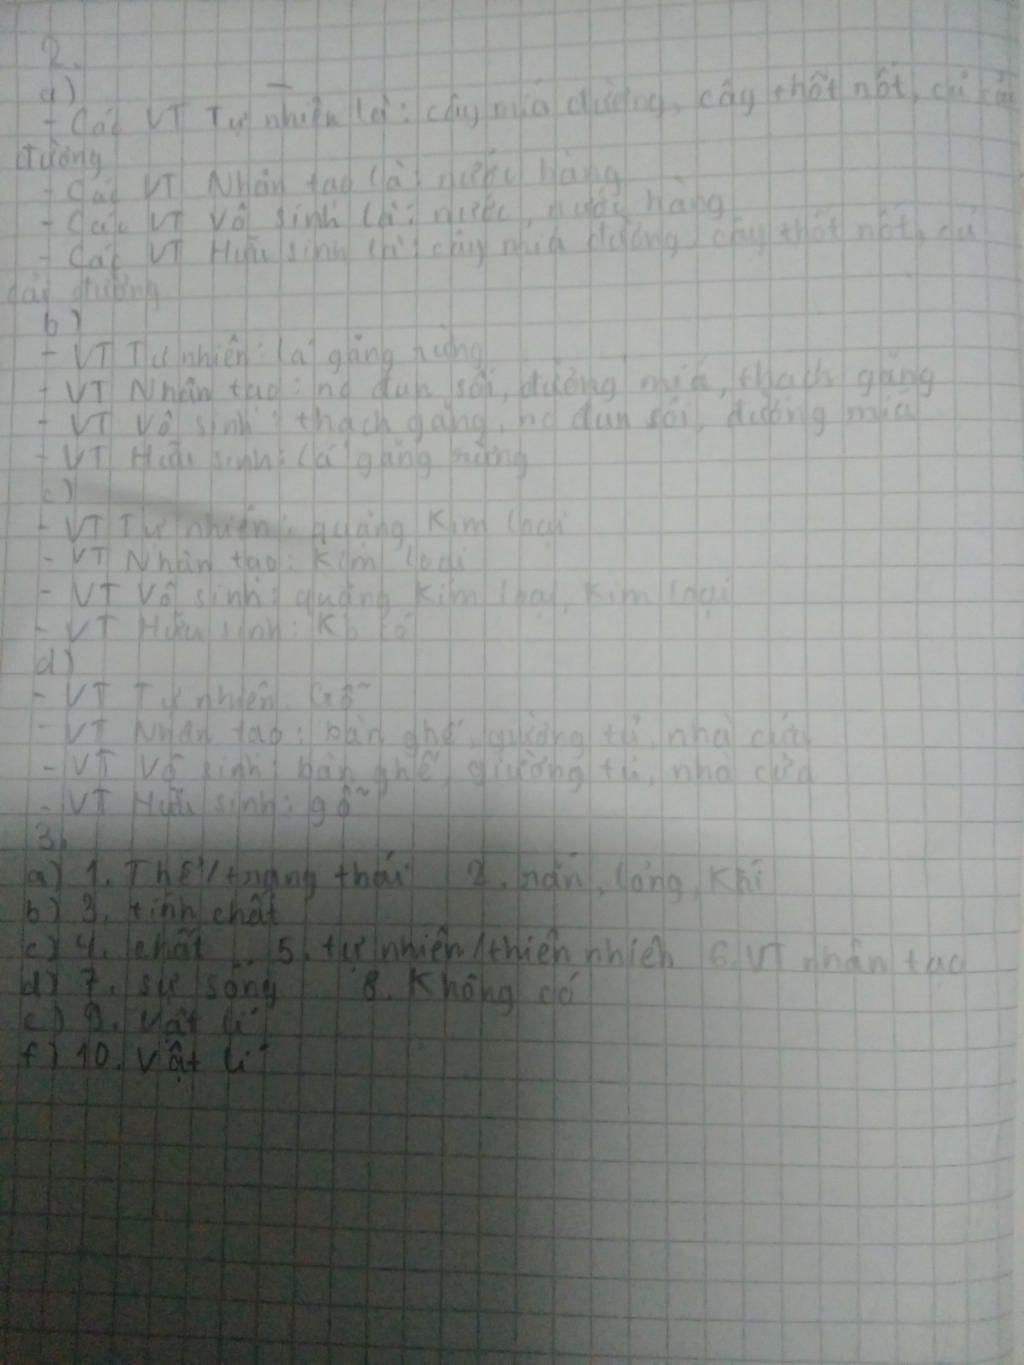 2.
a)
- Các VT Tự nhiên là: cây mía đường, cây thốt nốt, củ cải
đường
- Các VT Nhân tạo là: nước hàng
- Các VT Vô sinh là: nước, nước hàng
- Các VT Hữu sinh là: cây mía đường, cây thốt nốt, củ
cải đường
b)
- VT Tự nhiên: lá găng rừng
- VT Nhân tạo: nc đun sôi, đường mía, thạch găng
- VT Vô sinh: thạch găng, nc đun sôi, đường mía
- VT Hữu sinh: lá găng rừng
c)
- VT Tự nhiên: quặng Kim loại
- VT Nhân tạo: Kim loại
- VT Vô sinh: quặng Kim loại, Kim loại
- VT Hữu sinh: Kb có
d)
- VT Tự nhiên: Gỗ
- VT Nhân tạo: bàn ghế, giường tủ, nhà cửa
- VT Vô sinh: bàn ghế, giường tủ, nhà cửa
- VT Hữu sinh: gỗ
3.
a) 1. Thể/trạng thái 2. rắn, lỏng, Khí
b) 3. tính chất
c) 4. chất 5. tự nhiên/thiên nhiên 6. VT nhân tạo
d) 7. sự sống 8. Không có
e) 9. Vật lí
f) 10. Vật lí